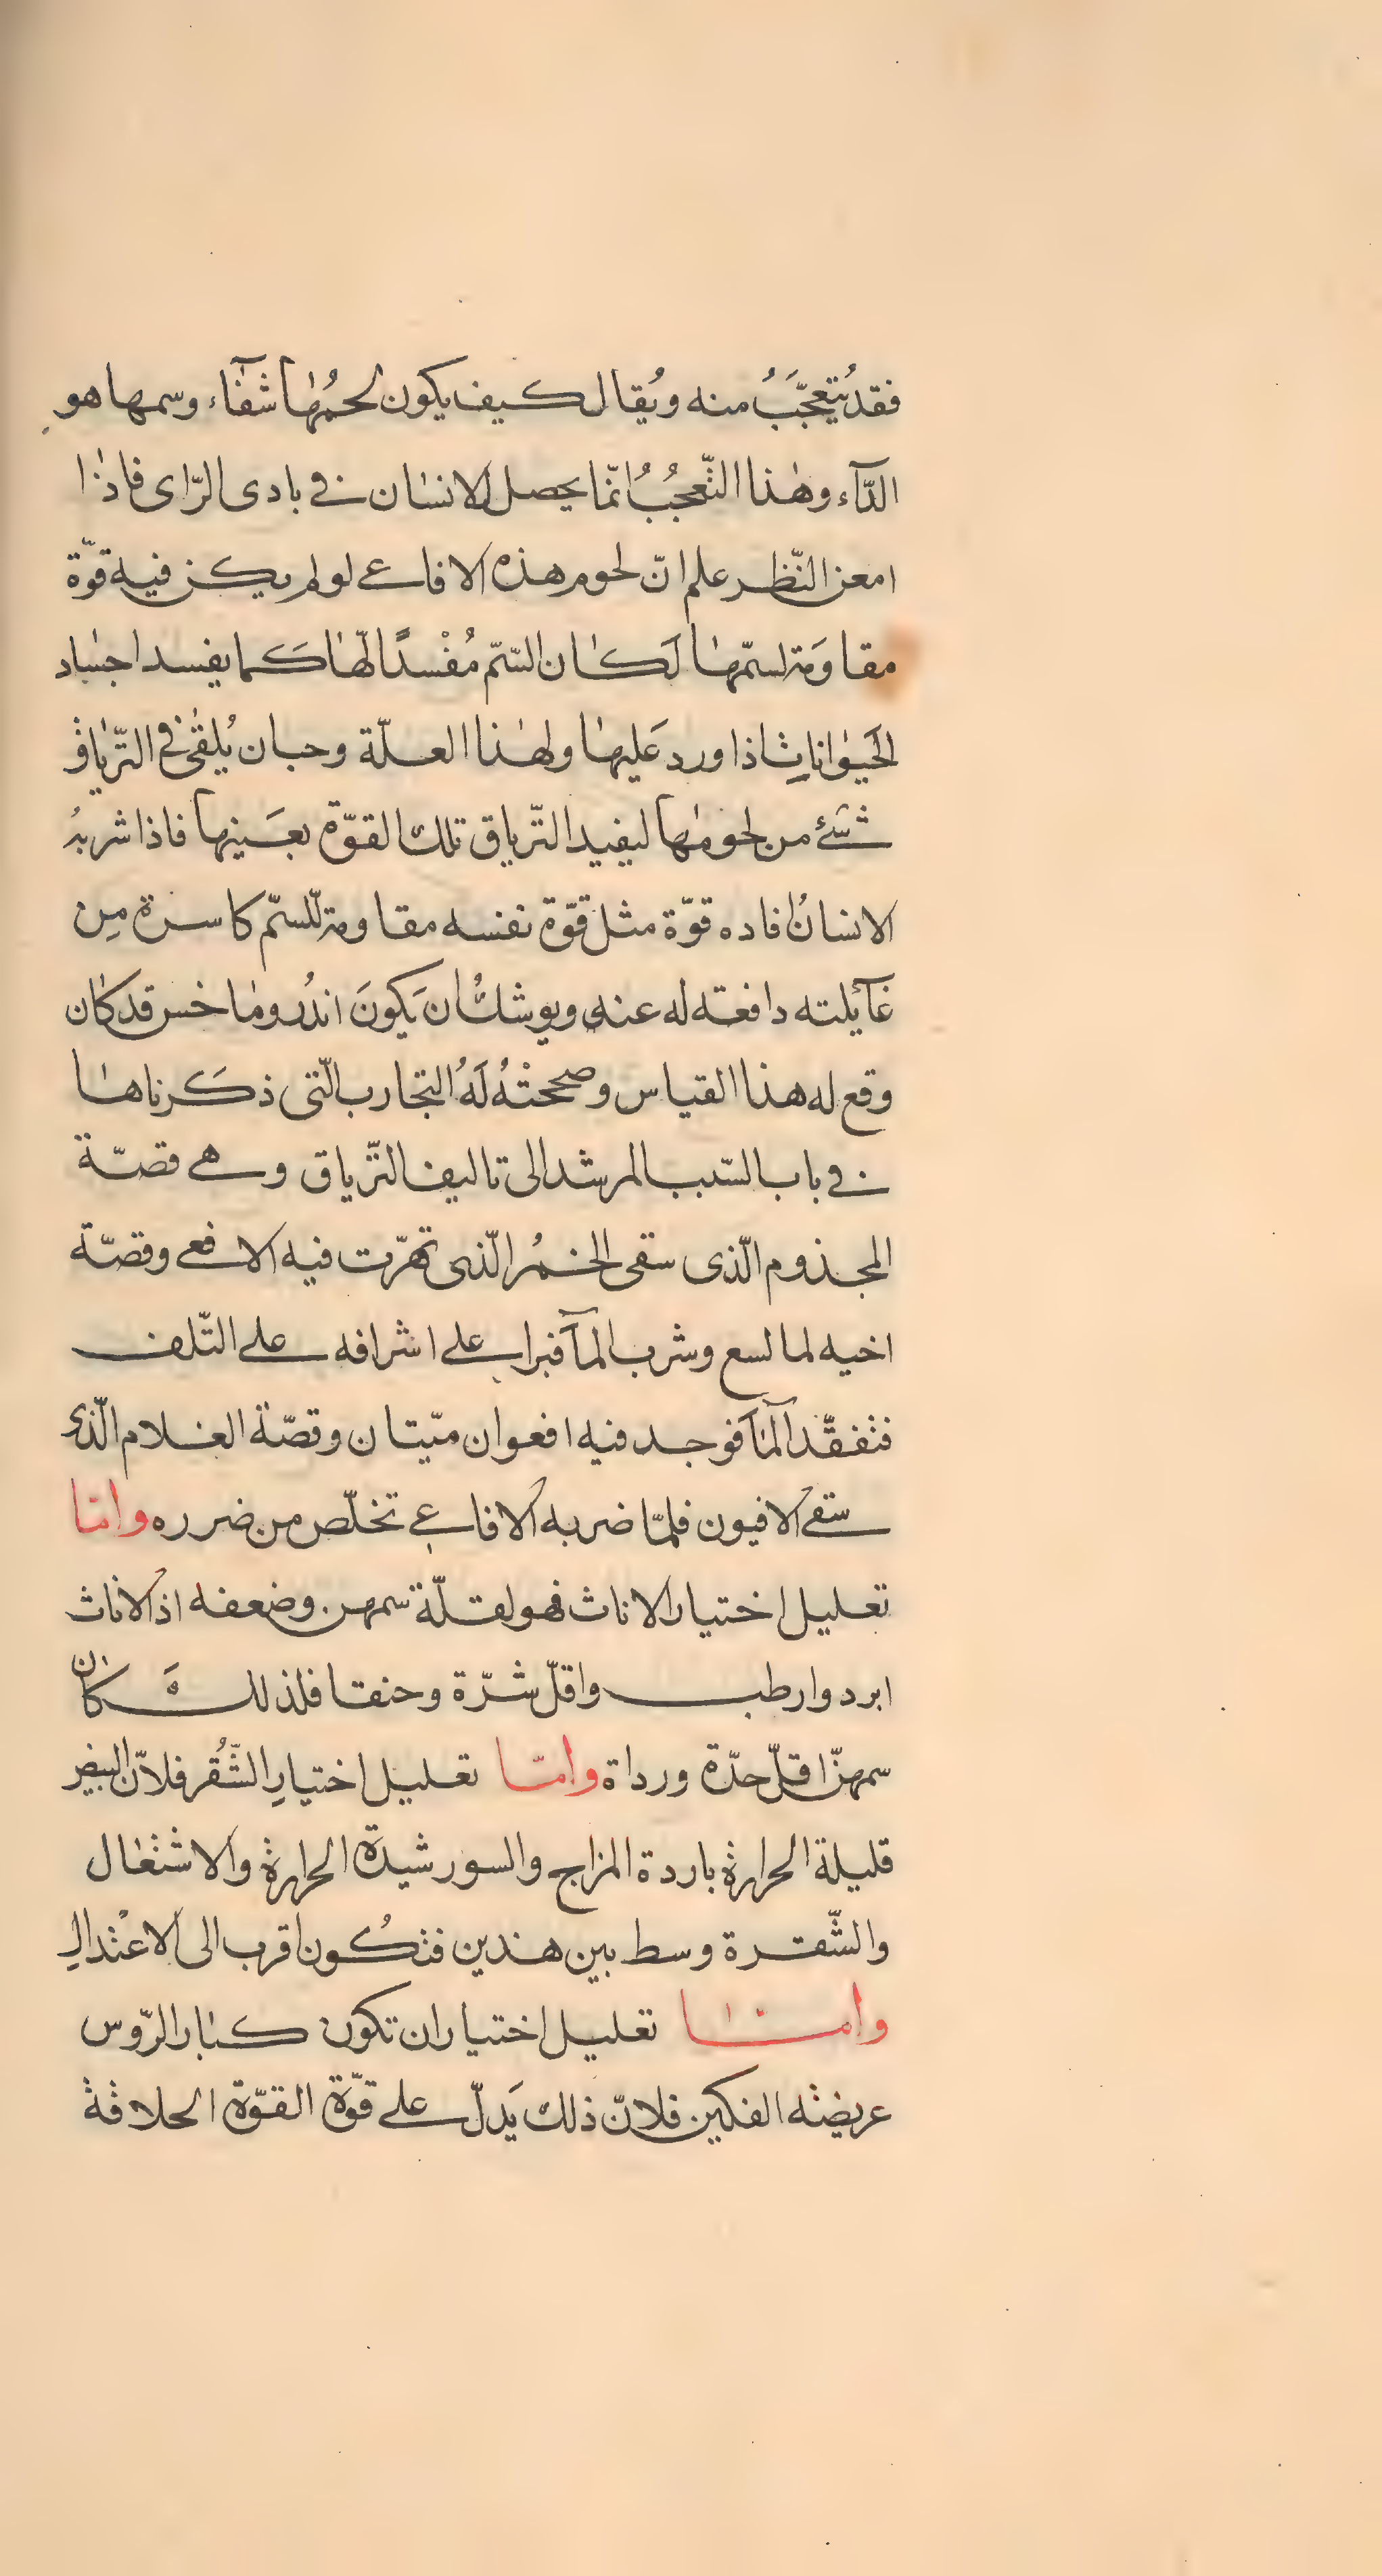 فقد يُتعجَّبُ منه ويُقال كيف يكون لحمُها شفآء وسمها هو
الدّآء وهٰذا التّعجّبُ انّما يحصل للانسان فى بادى الرّاى فاذا
امعن النّظر علم انّ لحوم هذه الافاعى لو لم يكن فيه قوّة
مقاومة لسمّها لَكان السّمّ مُفْسدًا لّها كَما يفسد اجساد
الحَيوانات اذا ورد عَليها ولهٰذا العلّة وجب ان يُلقٰى فى التّرياق
شَىء من لحومها ليفيد التّرياق تلك القوّة بعَينها فاذا شربهُ
الانسانُ افاده قوّة مثل قوّة نفسه مقاومة للسّم كاسرة مِن
غآئلته دافعته له عنه ويوشك ان يَكونَ اندُروماخس قد كان
وقع له هذا القياس وصححتْهُ لَهُ التجارب الّتى ذكَرناها
فى باب السّبب المرشد الى تاليف التّرياق وهى قصّة
المجذوم الّذى سقى الخمُر الّذى تهرّت فيه الافعى وقصّة
اخيه لما لسع وشرب المآ فبرا على اشرافه على التّلف
فتفقّد المآ فوجد فيه افعوان ميّتان وقصّة الغلام الّذى
سقى الافيون فلمّا ضربه الافاعى تخلّص من ضرره وامّا
تعليل اختيار الاناث فهو لقلّة سمهن وضعفه اذ الاناث
ابرد وارطب واقلّ شرّة وحنقا فلذلك كان
سمهنّ اقلّ حدّة ورداة وامّا تعليل اختيارِ الشُّقر فلانّ البيض
قليلة الحرارة باردة المزاج والسور شيدة الحرارة والاشتعال
والشّقرة وسط بين هذين فتكُون اقرب الى الاعْتدالِ
وامّا تعليل اختيار ان تكون كبار الرّوس
عريضته الفكين فلانّ ذلك يَدلّ على قوّة القوّة الحلاقة